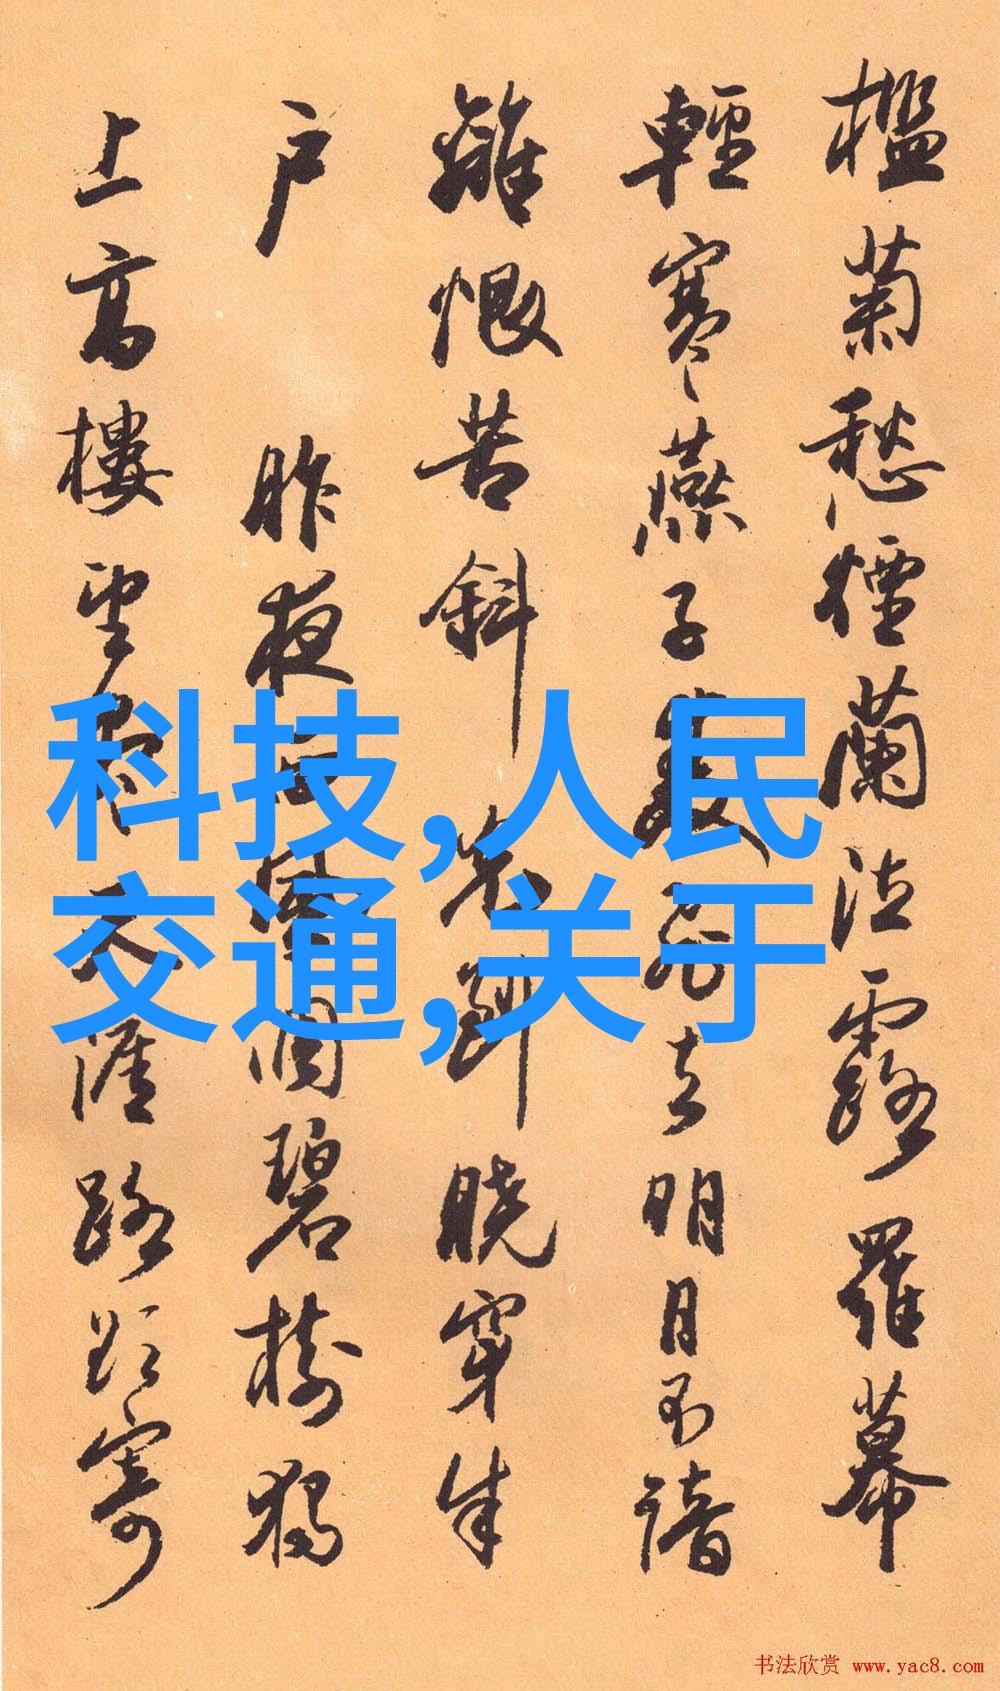 檻菊愁煙蘭泣露羅幕
輕寒燕子雙飛去明月不諳
離恨苦斜光到曉穿朱
户 昨夜西風凋碧樹獨
上高樓望盡天涯路欲寄
科技,人民
交通,关于
书法欣赏 www.yac8.com